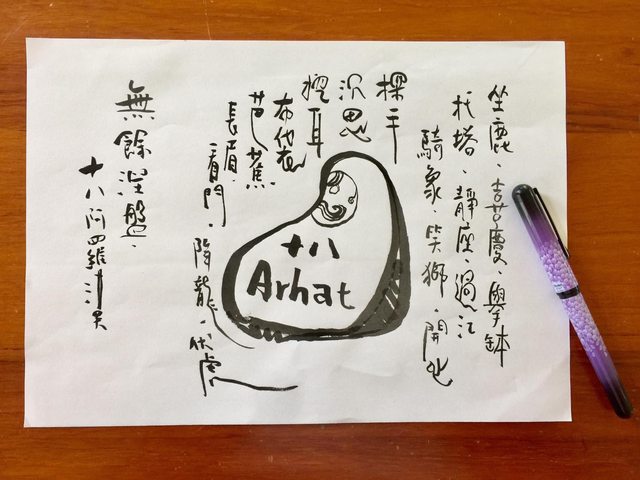 坐鹿、喜慶、舉缽
托塔、靜座、過江
騎象、笑獅、開心
探手
沉思
挖耳
布袋
芭蕉
長眉、
看門、降龍、伏虎
十八
Arhat
無餘涅盤、
十八阿羅漢